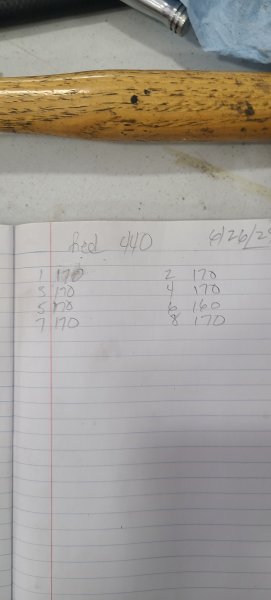 Red 440 6/26/2
1 170 2 170
3 170 4 170
5 170 6 160
7 170 8 170